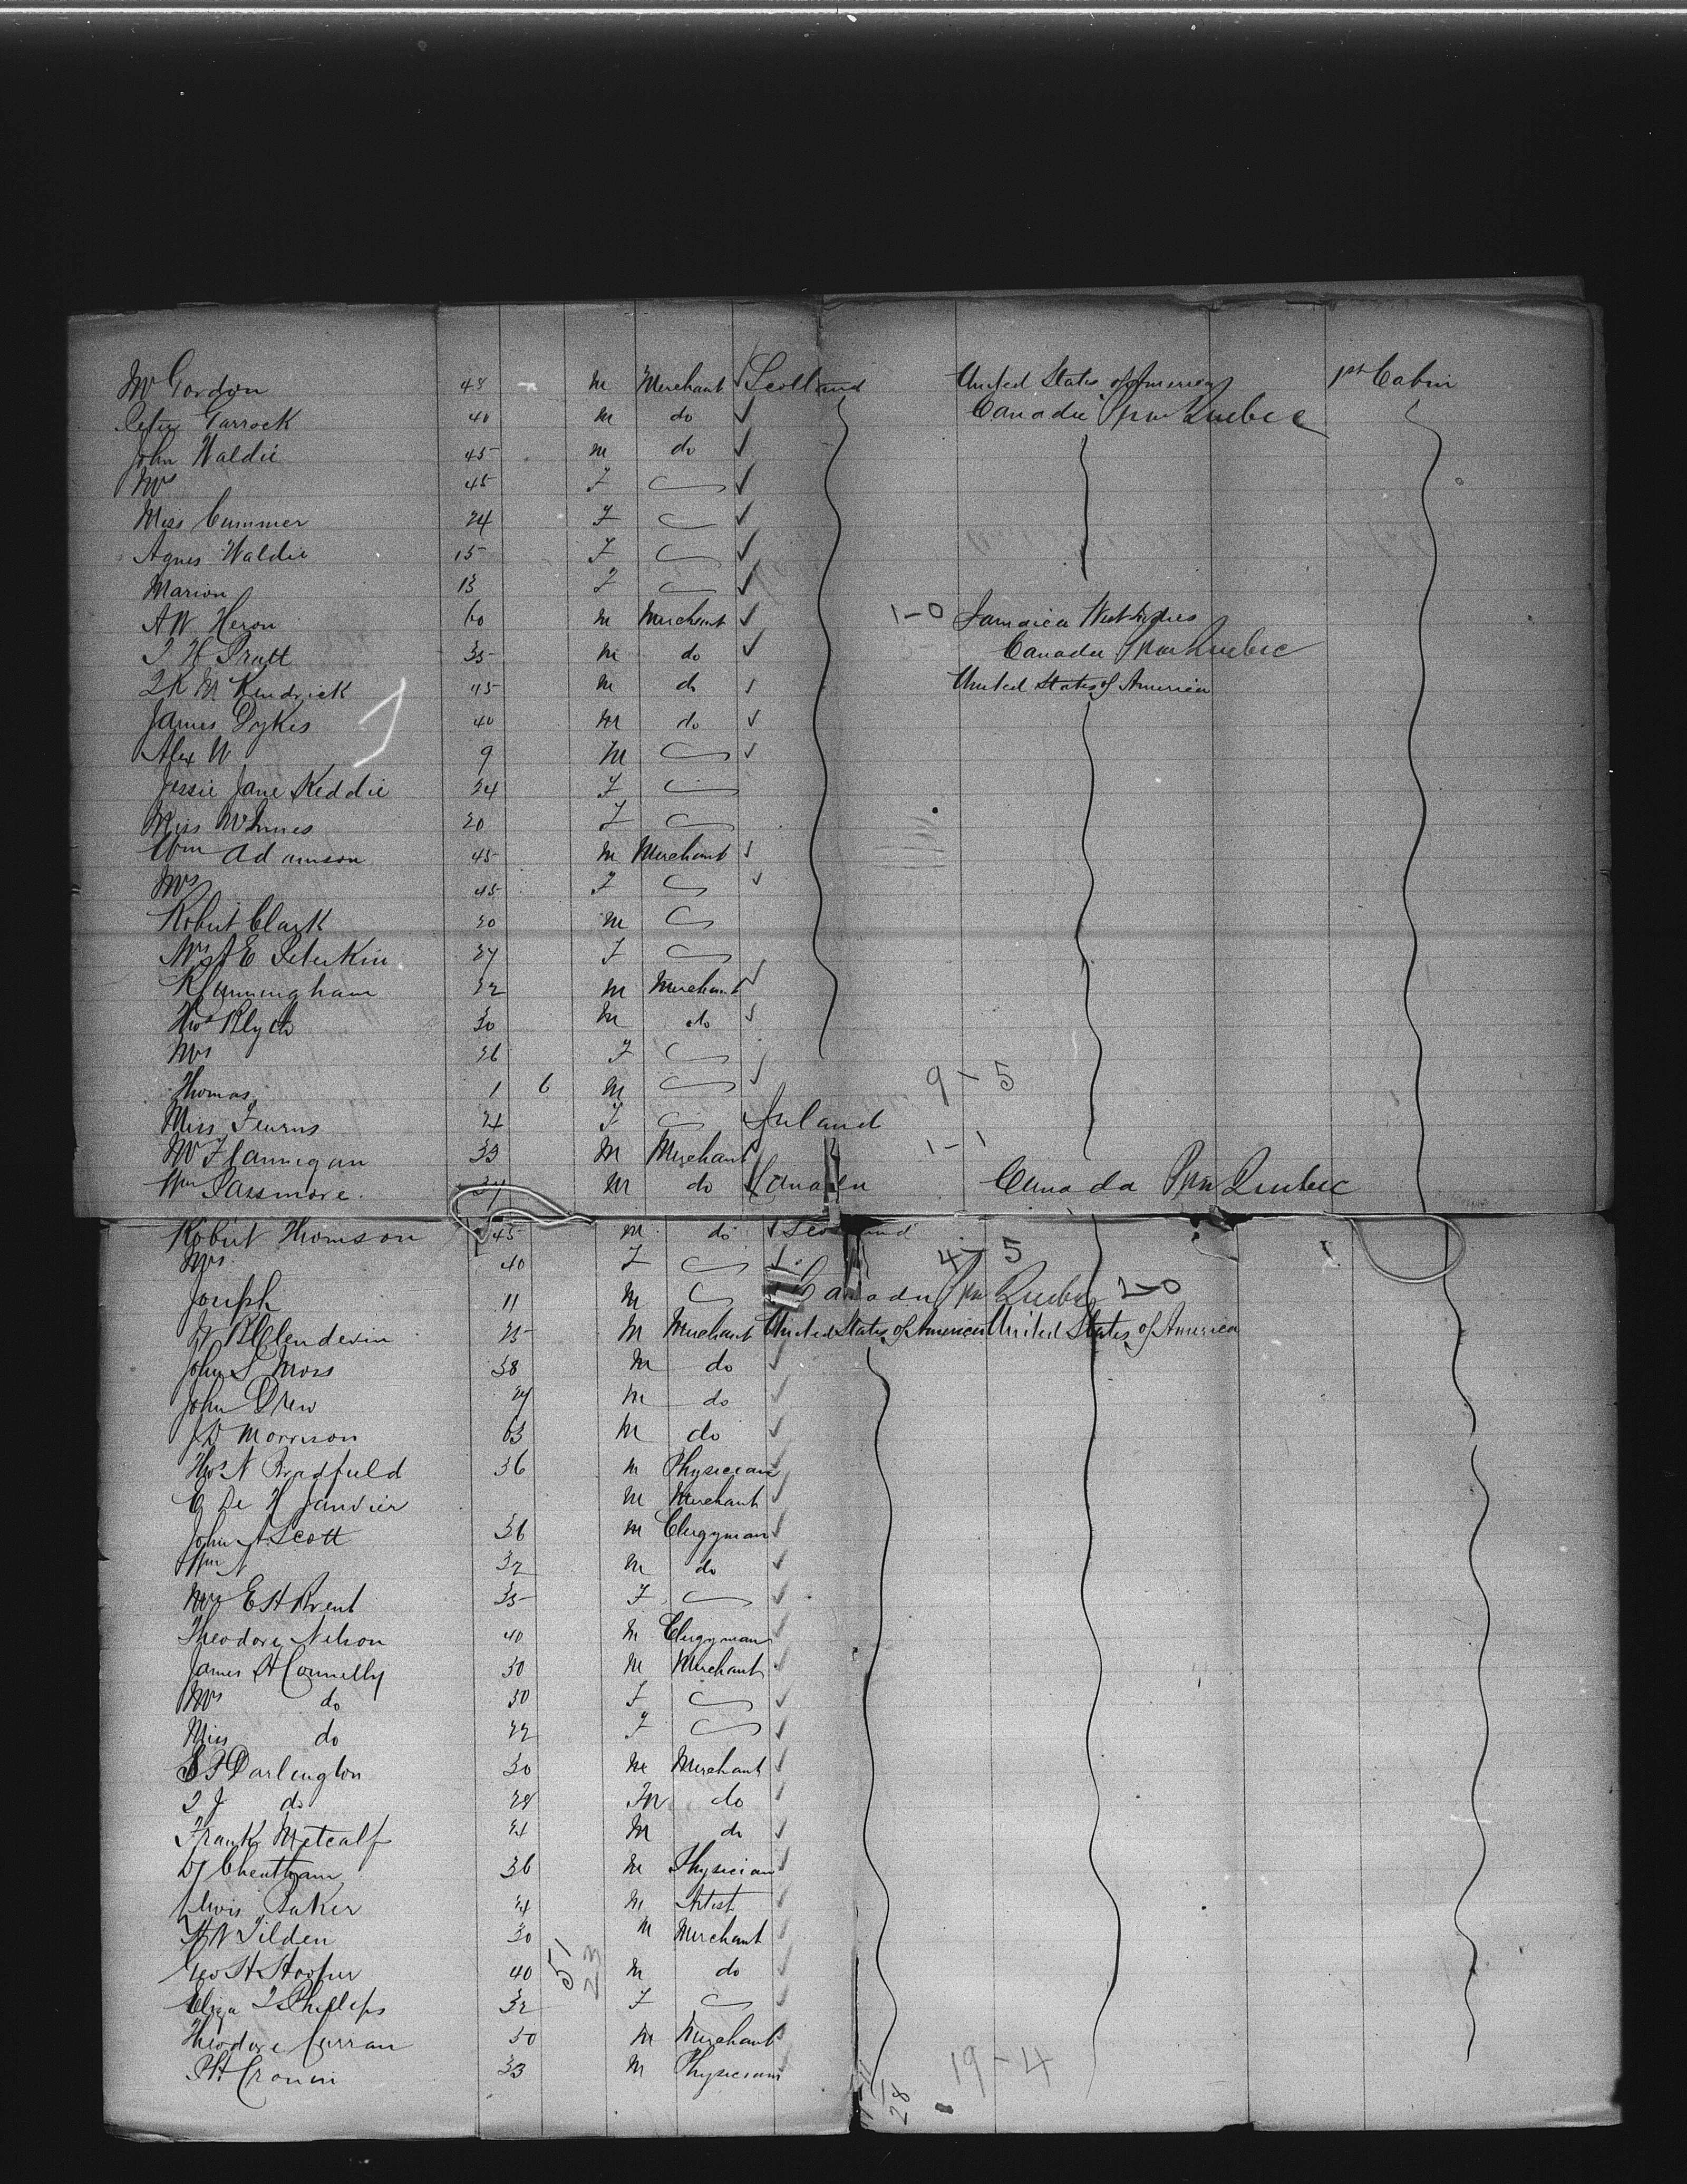 Mr Gordon 48 M Merchant Scotland United States of America 1st Cabin
Peter Garrock 40 M do Canada Quebec
John Waldie 45 M do
Mrs 45 F
Miss Cummer 24 F
Agnes Waldie 15 F
Marion 13 F
A W Heron 60 M Merchant 1-0 Jamaica West Indies
Pratt 35 M do Canada Quebec
Kendrick 45 M do United States of America
James Dykes 40 M do
Alex W 9 M
Jessie Jane Keddie 24 F
Miss McInnes 20 F
Wm Adamson 45 M Merchant
Mrs 45 F
Robert Clark 20 M
Mrs E Peterkin 27 F
R Cunningham 22 M Merchant
Thos Blyth 30 M do
Mrs 26 F
Thomas 1 6 M 9-5
Miss 24 F Ireland
Mr Flannigan 33 M Merchant 1-1
Wm Passmore 37 M do Canada Canada Quebec
Robert Thomson 45 M do Scotland
Mrs 40 F 4-5
Joseph 11 M Canada Quebec 2-0
Clendenin 25 M Merchant United States of America United States of America
John S Moss 38 M do
John Drew 27 M do
J D Morrison 63 M do
Thos N Bradfield 36 M Physician
C De H Janvier M Merchant
John A Scott 36 M Clergyman
Wm N 32 M do
Mrs E H Brent 35 F
Theodore Nelson 40 M Clergyman
James H Connelly 30 M Merchant
Mrs do 30 F
Miss do 22 F
S F Darlington 30 M Merchant
J do 28 M do
Frank Metcalf 24 M do
Cheatham 36 M Physician
Lewis Baker 24 M Artist
H N Tilden 30 M Merchant
Geo H Hooper 40 51 23 M do
Eliza Phillips 32 F
Theodore Curran 50 M Merchant
Cronin 33 M Physician 19-4
28